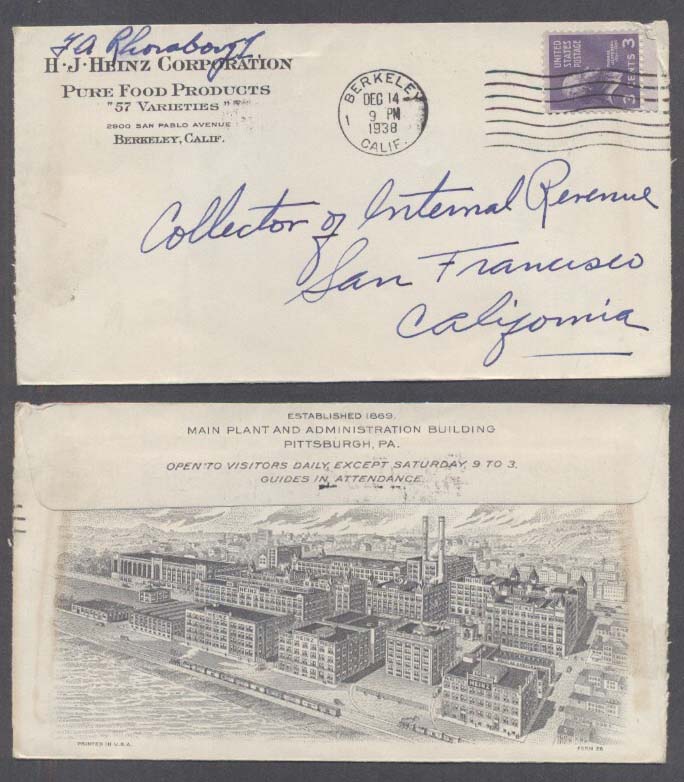 F A
H·J·HEINZ CORPORATION
PURE FOOD PRODUCTS
"57 VARIETIES"
2900 SAN PABLO AVENUE
BERKELEY, CALIF.
BERKELEY
DEC 14
9 PM
1938
1
CALIF.
UNITED STATES POSTAGE
3 CENTS 3
Collector of Internal Revenue
San Francisco
California
ESTABLISHED 1869.
MAIN PLANT AND ADMINISTRATION BUILDING
PITTSBURGH, PA.
OPEN TO VISITORS DAILY, EXCEPT SATURDAY, 9 TO 3.
GUIDES IN ATTENDANCE.
HEINZ
PRINTED IN U.S.A.
FORM 26